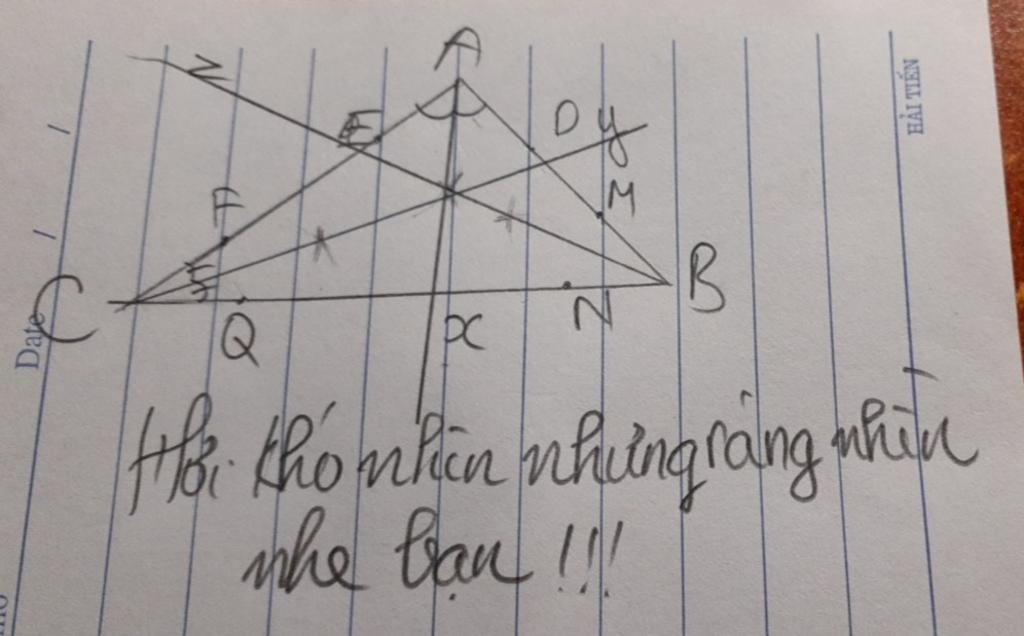 A
HẢI TIẾN
z
E
D y
F
M
C
B
Q
x
N
Date / /
Hơi khó nhìn nhưng ráng nhìn
nhe bạn !!!